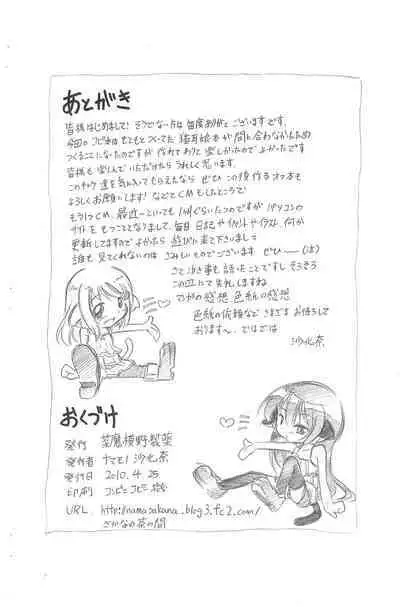 あとがき
皆様はじめまして！そうでない方は毎度ありがとうございます。
今回のコピー本はもともとつくってた猫耳娘本が間に合わなかったため
つくることになったのですが作れてわりと楽しかったのでよかったです
皆様も楽しんでいただけたらうれしく思います。
このチャケ達を気に入ってもらえたなら ぜひこの後作るオフ本も
よろしくお願いします！などとCMもしたところで
もう1つCM、最近―といっても1ヶ月ぐらいたつのですがパソコンの
サイトをもつことなしまして、毎日日記やイベントやイラスト、何か
更新してますのでよかったら 遊びに来て下さいまし～
誰も見てくれないのは さみしいものでございます ぜひ――(泣)
さて済き事も語ったことですしそろそろ
この辺にて失礼しますね
マンガの感想 色紙の感想
色紙の依頼など さまざま お待ちして
おります～、ではでは
沙比奈
おくづけ
発行 菜魔横野製薬
発行者 ナマモノ 沙比奈
発行日 2010.4.25
印刷 コンビニコピー機
URL. http://namasakana.blog3.fc2.com/
さかなの茶の間